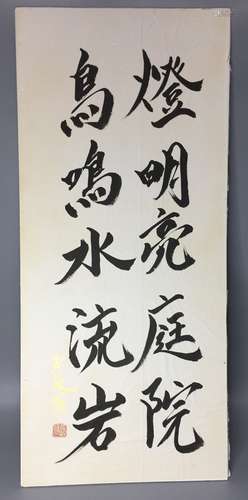 燈明亮庭院
鳥鳴水流岩